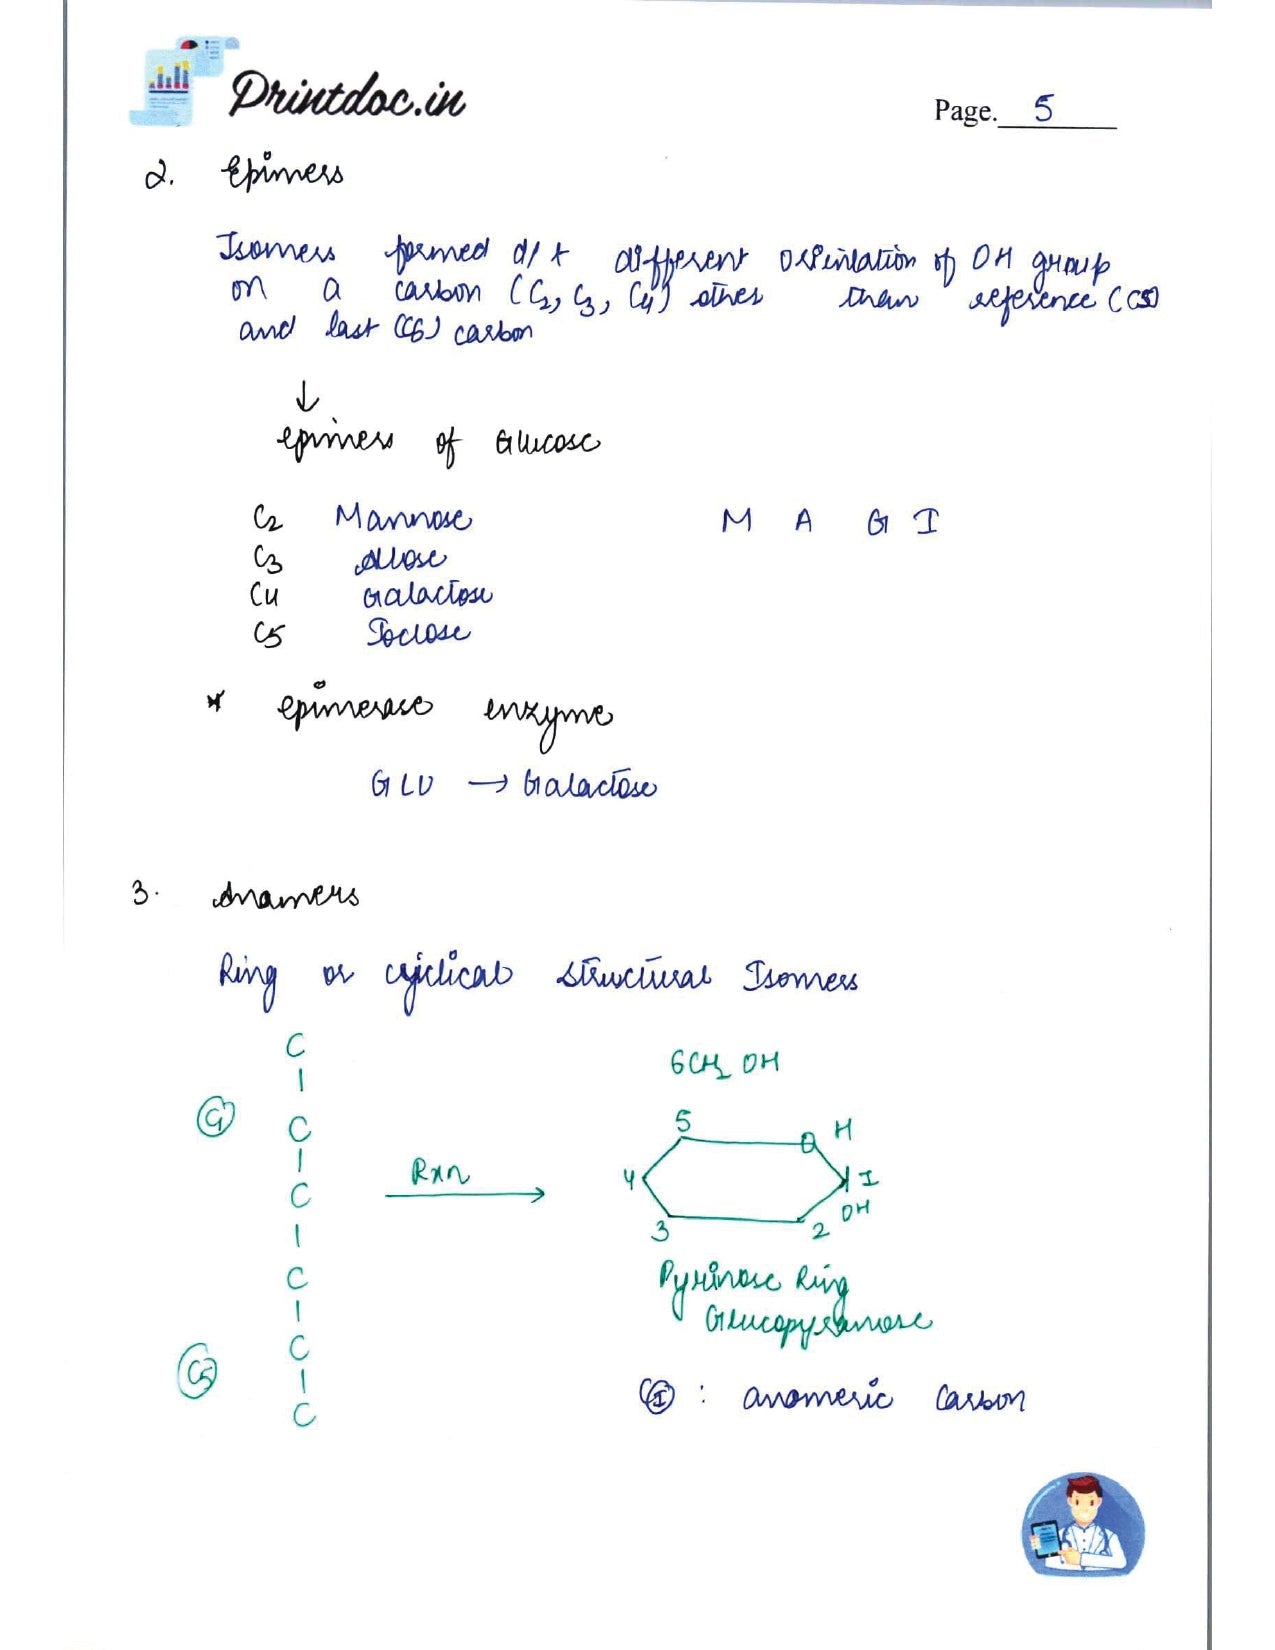 Printdoc.in
Page. 5
2. Epimers
Isomers formed d/t different orientation of OH group
on a carbon (C2, C3, C4) other than reference (C5)
and last (C6) carbon
↓
epimers of Glucose
C2 Mannose M A G I
C3 Allose
C4 Galactose
C5 Idose
* epimerase enzyme
GLU → Galactose
3. Anamers
Ring or cyclical structural Isomers
C
C1 C
C
C
C
C5 C
Rxn
6CH2 OH
5 O H
4 1
OH
3 2
Pyrinose Ring
Glucopyranose
C1 : anomeric carbon